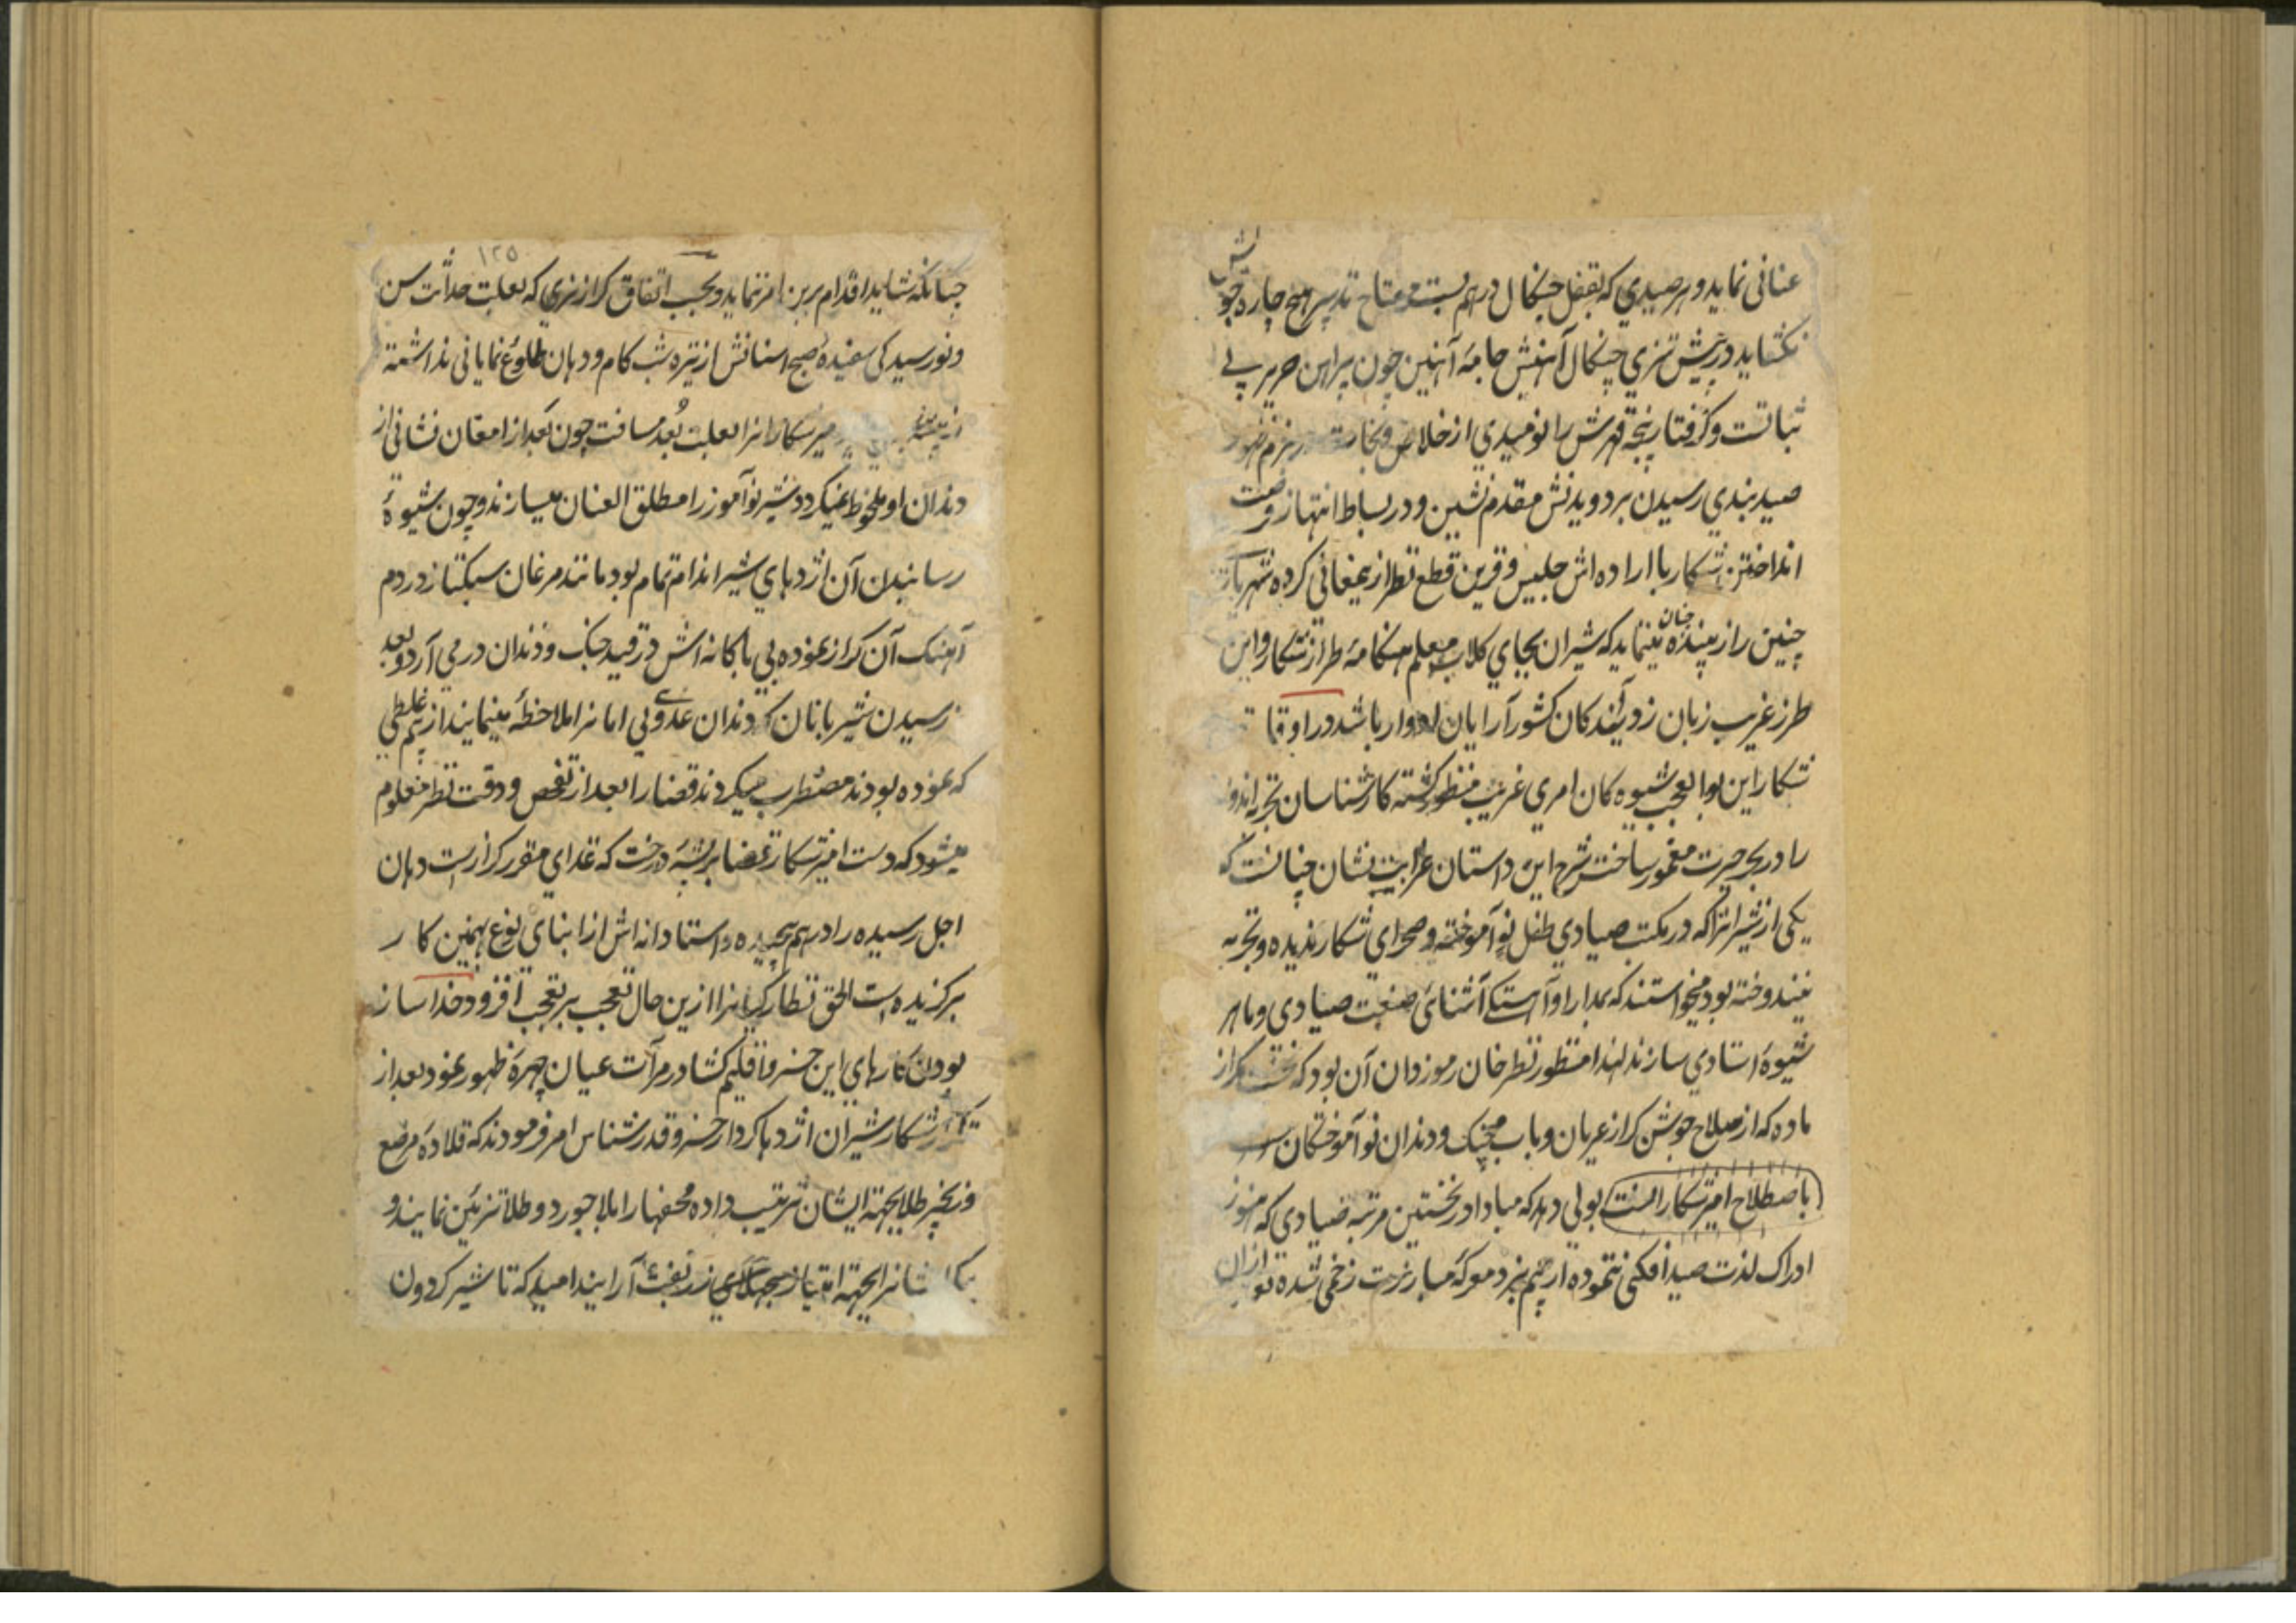 عنانی نماید و هر صیدی که بقفل چنکال درهم بست مفتاح تدبیر هیچ چاره جو
نکشاید در پیش تیزی چنکال آهنینش جامهٔ آهنین چون پیراهن حریر بی
ثباتست و کرفتار پنجه قهرش را نومیدی از خلاص و نجات در بزم
صید بندی رسیدن بر دویدنش مقدم نشین و در بساط انتهاز فرصت
انداختن شکار با اراده اش جلیس و قرین قطع نظر از یمغانی کرده شهریار
چنین را زیبنده چنان مینماید که شیران بجای کلاب معلم هنکامهٔ طراز شکار و این
طرز غریب زبان زد آیندکان کشور آرایان ادوار باشد در اوقات
شکار این بوالعجب شیوه کان امری غریب منظور کشته کارشناسان تجربه اندوز
را در بحر حیرت مغمور ساخت شرح این داستان غرابت نشان چنانست که
یکی از شیرانرا که در مکتب صیادی طفل نو آموخته و صحرای شکار ندیده و تجربه
نیندوخته بود میخواستند که بمدارا و آهستکی آشنای صنعت صیادی و ماهر
شیوهٔ استادی سازند لهذا منظور نظر خان رموزدان آن بود که نخست کراز
ماده که از سلاح جوشن کراز عریان و باب جنک و دندان نو آموختکان است
باصطلاح امیر شکار الست بولی دهد که مبادا در نخستین مرتبه صیادی که هنوز
ادراک لذت صید افکنی ننموده از خصم نبرد معرکهٔ مبارزت زخمی شده تو از ان
۱۲۵
چنانکه شاید اقدام برین امر ننماید و بحسب اتفاق کراز نری که بعلت حداثت سن
و نورسیدکی سفیدهٔ صبح اسنانش از تیره شب کام و دهان طلوع نمایانی نداشته
میرشکارانرا بعلت بُعد مسافت چون بکراز امعان نشانی از
دندان او ملحوظ نمیکردد شیر نو آموز را مطلق العنان میسازند و چون شیوهٔ
رسانیدن آن اژدهای شیر اندام تمام بود مانند مرغان سبکتاز در دم
آهنک آن کراز نموده بی باکانه اش در قید چنک و دندان در می آرد و بعد
رسیدن شیربانان که دندان عدوبی امانرا ملاحظه مینمایند از بیم غلطی
که نموده بودند مضطرب میکردند قضا را بعد از تفحص و دقت نظر معلوم
میشود که دست امیر شکار قضا بریشهٔ درخت که غذای مقرر کرازست دهان
اجل رسیده را درهم پیچیده و استادانه اش از ابنای نوع بهمین کار
برکزیده است الحق نظارکیانرا ازین حال تعجب بر تعجب افزود خداساز
بودن کارهای این خسرو اقلیم کشا در مرآت عیان چهرهٔ ظهور نمود بعد از
شکار شیران اژدها کردار خسرو قدرشناس امر فرمودند که قلادهٔ مرصع
و زنجیر طلا بجهة ایشان ترتیب داده محفها را بلاجورد و طلا تزیین نمایند و
بجهة امتیاز بجلهای زربفت آرایند امید که تا شیر کردون